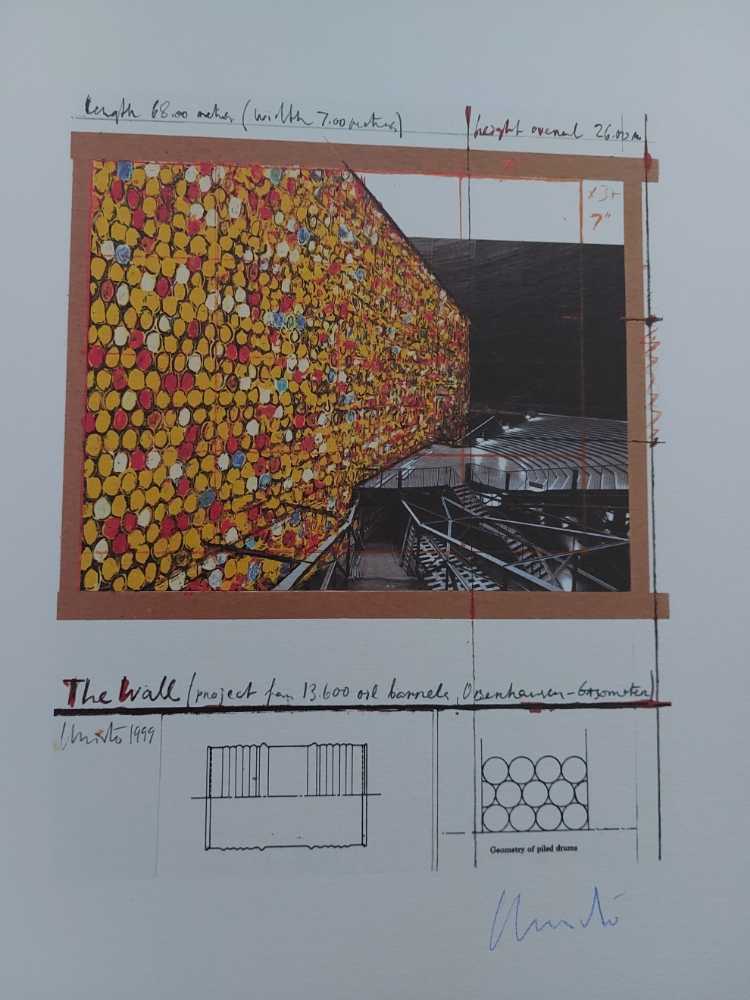 Length 68.00 metres (width 7.00 metres)
height overall 26.00 m
x 3+
7"
The Wall (project for 13.600 oil barrels, Oberhausen-Gasometer)
Christo 1999
Geometry of piled drums
Christo